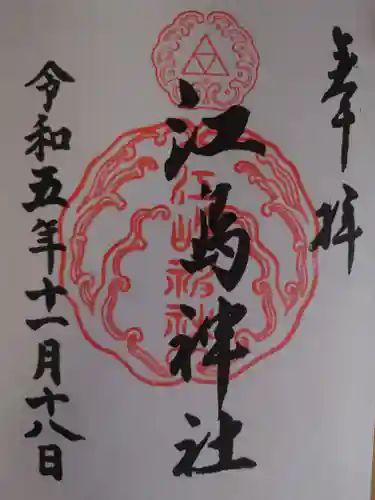 奉拝
江島神社
江島神社
令和五年十一月十八日